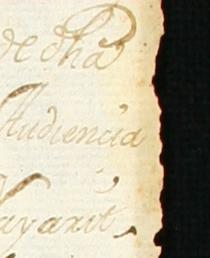 de dha
Audiencia
Nayarit,